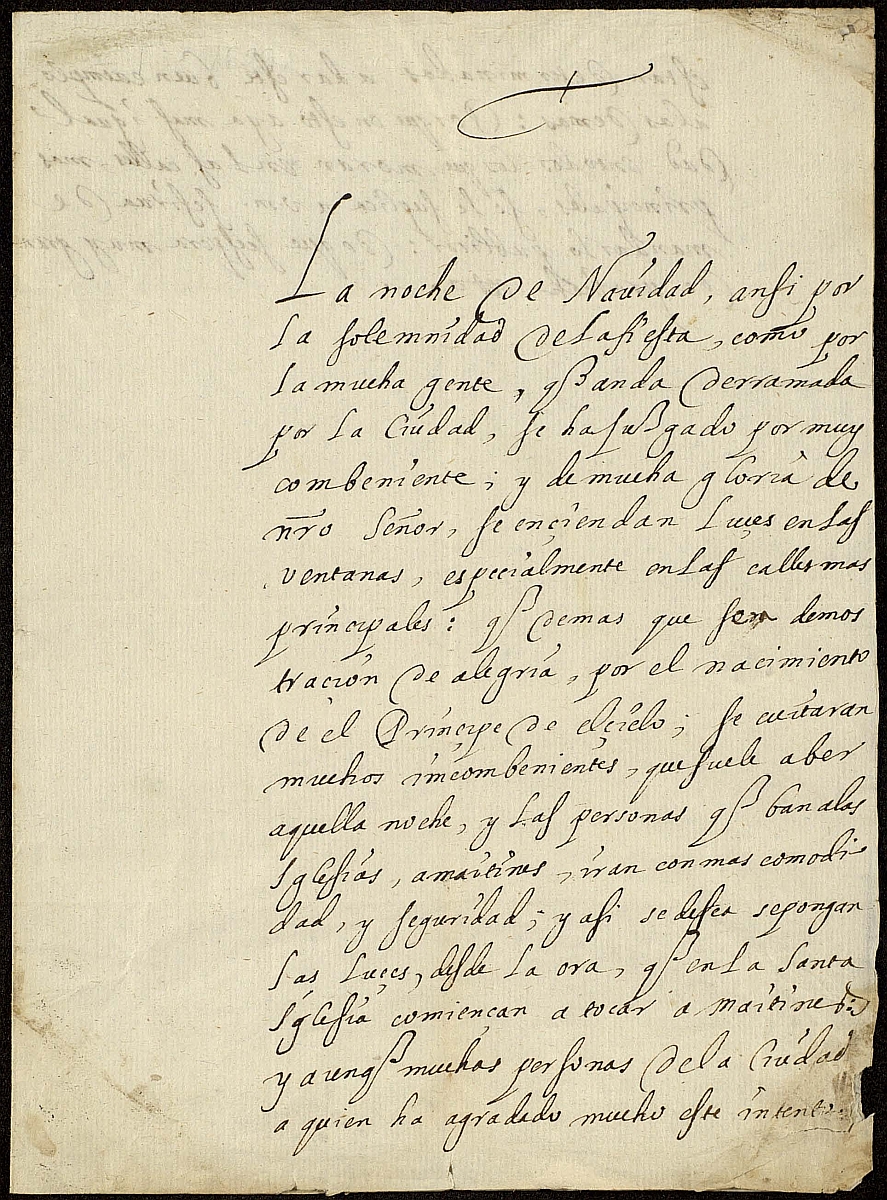 La noche de Nauidad, ansi por
la solemnidad de la fiesta, como por
la mucha gente, q̃ anda derramada
por la Ciudad, se ha juzgado por muy
combeniente; y de mucha gloria de
nr̃o Señor, se ençiendan luçes en las
ventanas, especialmente en las calles mas
principales: q̃ demas que sera demos
tración de alegria, por el nacimiento
de el Principe de el çielo; se euitaran
muchos incombenientes, que suele aber
aquella noche, y las personas q̃ ban a las
Iglesias, a maitines, iran con mas comodi
dad, y seguridad; y asi se desea se pongan
las luçes, desde la ora, q̃ en la Santa
Iglesia comiencan a tocar a maitines:
y aunq̃ muchas personas de la Ciudad
a quien ha agradado mucho este intento